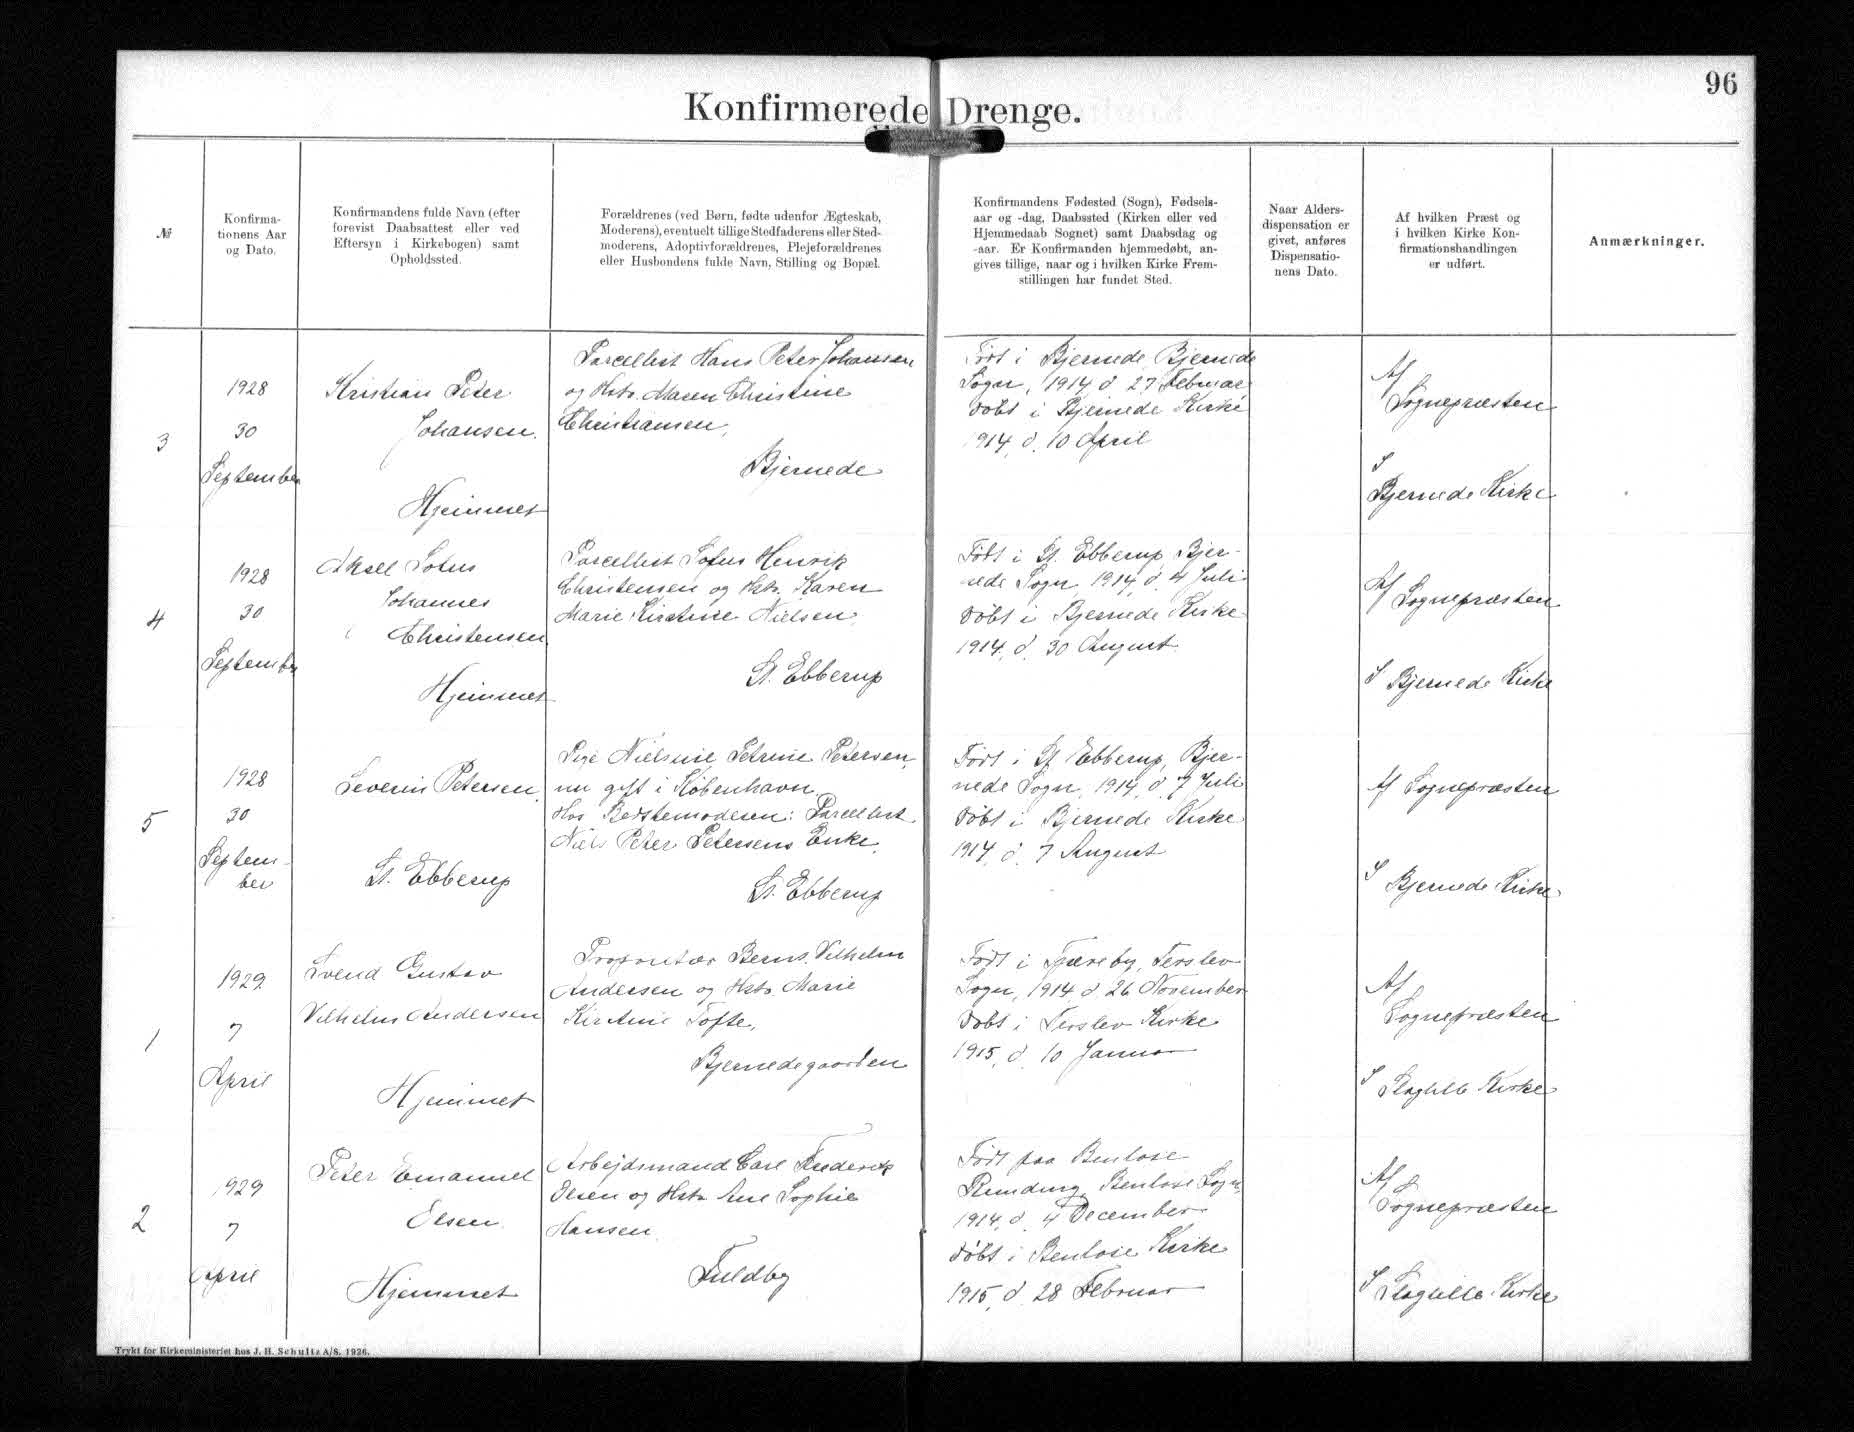 96
Konfirmerede Drenge.
№
Konfirma-
tionens Aar
og Dato.
Konfirmandens fulde Navn (efter
forevist Daabsattest eller ved
Eftersyn i Kirkebogen) samt
Opholdssted.
Forældrenes (ved Børn, fødte udenfor Ægteskab,
Moderens), eventuelt tillige Stedfaderens eller Sted-
moderens, Adoptivforældrenes, Plejeforældrenes
eller Husbondens fulde Navn, Stilling og Bopæl.
Konfirmandens Fødested (Sogn), Fødsels-
aar og -dag, Daabssted (Kirken eller ved
Hjemmedaab Sognet) samt Daabsdag og
-aar. Er Konfirmanden hjemmedøbt, an-
gives tillige, naar og i hvilken Kirke Frem-
stillingen har fundet Sted.
Naar Alders-
dispensation er
givet, anføres
Dispensatio-
nens Dato.
Af hvilken Præst og
i hvilken Kirke Kon-
firmationshandlingen
er udført.
Anmærkninger.
3
1928
30
September
Kristian Peter
Johansen.
Hjemmet
Parcellist Hans Peter Johansen
og Hstr. Maren Christine
Christiansen,
Bjernede
Født i Bjernede, Bjernede
Sogn, 1914 d. 27 Februar
døbt i Bjernede Kirke
1914, d. 10 April
Af
Sognepræsten
I
Bjernede Kirke
4
1928
30
September
Aksel Sofus
Johannes
Christensen
Hjemmet
Parcellist Sofus Henrik
Christensen og Hstr. Karen
Marie Kirstine Nielsen.
St. Ebberup
Født i St. Ebberup, Bjer-
nede Sogn, 1914, d. 4 Juli
døbt i Bjernede Kirke
1914, d. 30 August.
Af Sognepræsten
I Bjernede Kirke
5
1928
30
Septem-
ber
Severin Petersen,
St. Ebberup
Pige Nielsine Petrine Petersen,
nu gift i København.
Hos Bedstemoderen: Parcellist
Niels Peter Petersens Enke,
St. Ebberup
Født i St. Ebberup, Bjer-
nede Sogn, 1914, d. 7 Juli
døbt i Bjernede Kirke
1914, d. 7 August
Af Sognepræsten
I Bjernede Kirke
1
1929
7
April
Svend Gustav
Vilhelm Andersen
Hjemmet
Proprietær Berns. Vilhelm
Andersen og Hstr. Marie
Kirstine Tofte,
Bjernedegaarden
Født i Tjæreby, Terslev
Sogn, 1914 d. 26 November
døbt i Terslev Kirke
1915, d. 10 Januar
Af
Sognepræsten
I Slaglille Kirke
2
1929
7
April
Peter Emanuel
Olsen
Hjemmet
Arbejdsmand Carl Frederik
Olsen og Hstr. Ane Sophie
Hansen
Fuldby
Født paa Benløse
Runding, Benløse Sogn,
1914, d. 4 December
døbt i Benløse Kirke
1915, d. 28 Februar
Af
Sognepræsten
I Slaglille Kirke
Trykt for Kirkeministeriet hos J. H. Schultz A/S. 1926.